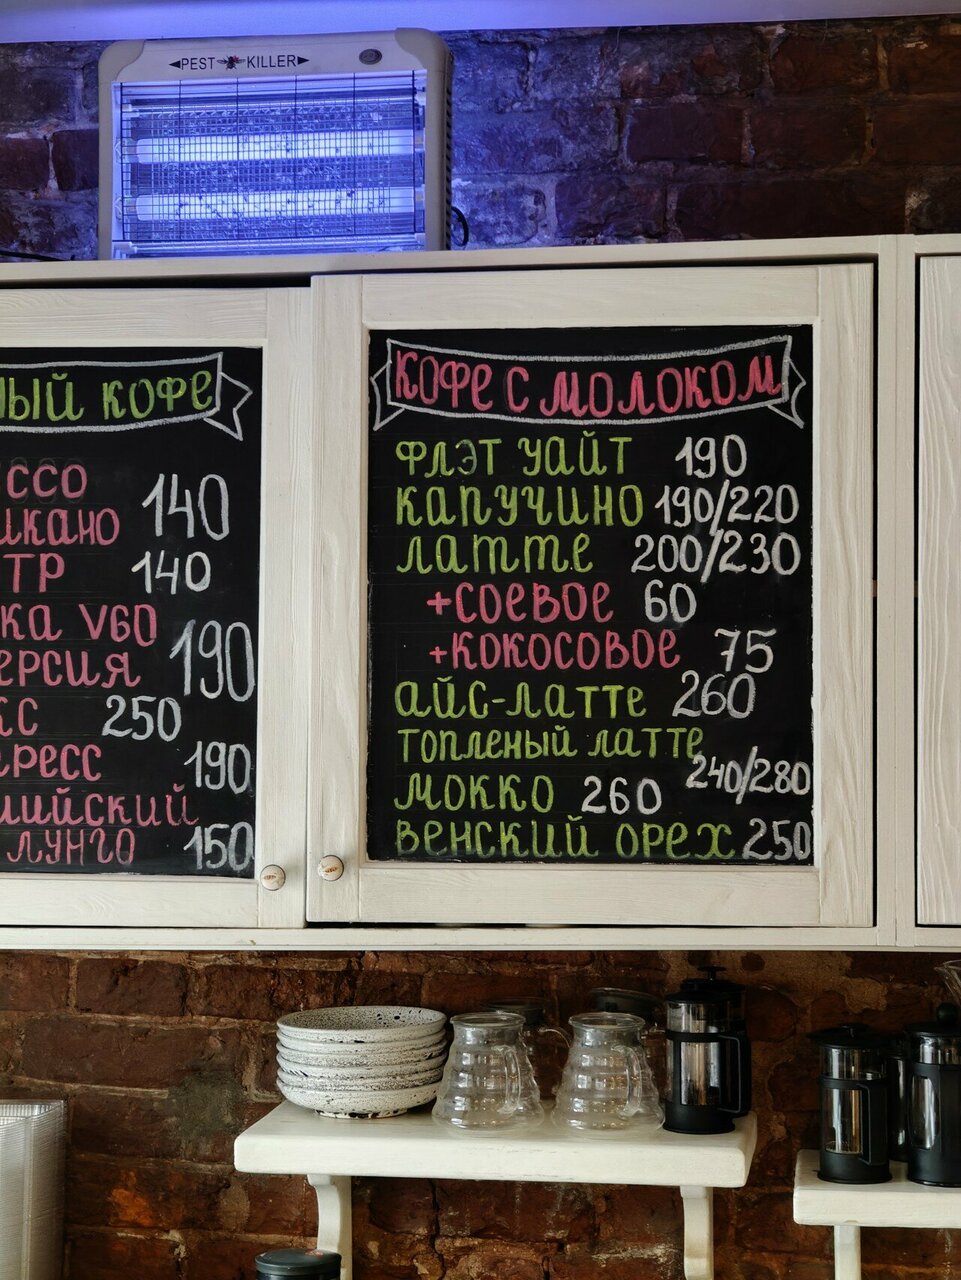 PEST KILLER
ный кофе
ссо
икано 140
тр 140
ка V60
ерсия 190
кс 250
ресс 190
ийский
лунго 150
КОФЕ С МОЛОКОМ
ФЛЭТ УАЙТ 190
КАПУЧИНО 190/220
ЛАТТЕ 200/230
+СОЕВОЕ 60
+КОКОСОВОЕ 75
АЙС-ЛАТТЕ 260
ТОПЛЕНЫЙ ЛАТТЕ
240/280
МОККО 260
ВЕНСКИЙ ОРЕХ 250